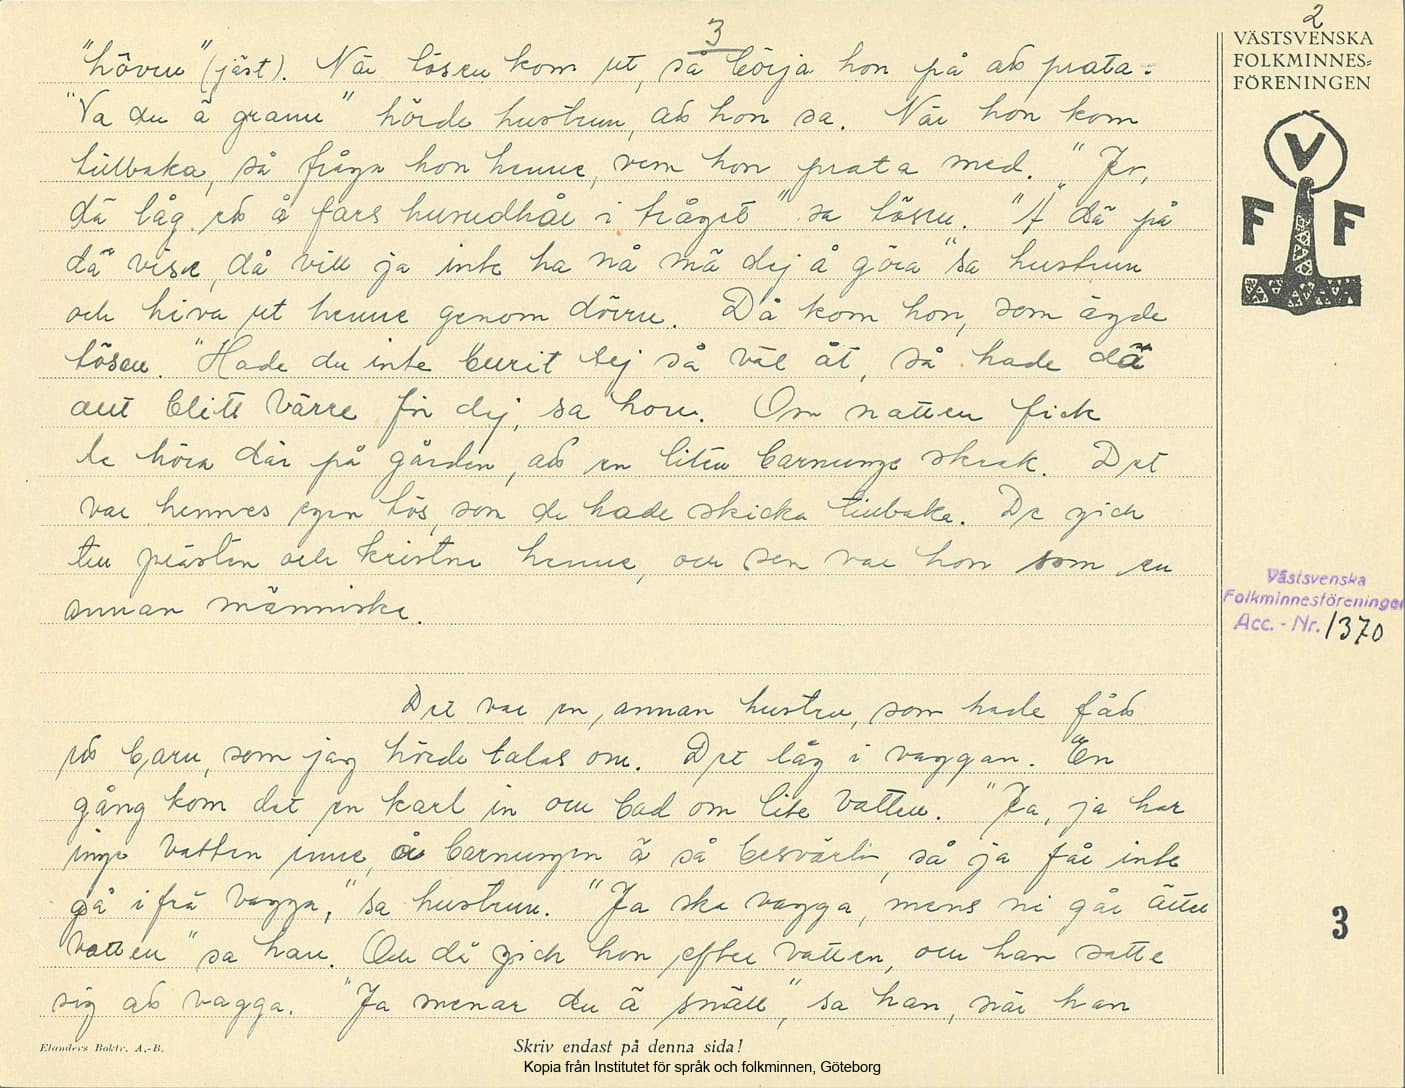 3
2
VÄSTSVENSKA
FOLKMINNES=
FÖRENINGEN
V
F F
"höven" (jäst). När tösen kom ut, så börja hon på att prata:
"Va du ä grann" hörde hustrun, att hon sa. När hon kom
tillbaka, så fråga hon henne, vem hon prata med. "Jo,
dä låg ett å fars huvudhår i tråget" sa tösen. "Ä dä på
dä viset, då vill ja inte ha nå mä dej å göra" sa hustrun
och hiva ut henne genom dörrn. Då kom hon, som ägde
tösen. "Hade du inte burit dej så väl åt, så hade dä
allt blitt värre för dej, sa hon. Om natten fick
de höra där på gården, att en liten barnunge skrek. Det
var hennes egen tös, som de hade skicka tillbaka. De gick
till prästen och kristna henne, och sen var hon som en
annan människa.
Det var en, annan hustru, som hade fått
ett barn, som jag hörde talas om. Det låg i vaggan. En
gång kom det en karl in och bad om lite vatten. "Ja, ja har
inge vatten inne, å barnungen ä så besvärli, så ja får inte
gå ifrå vagga," sa hustrun. "Ja ska vagga, mens ni går ätter
vatten" sa han. Och då gick hon efter vatten, och han satte
sig att vagga. "Ja menar du ä snäll", sa han, när han
Västsvenska
Folkminnesföreningen
Acc. - Nr. 1370
3
Elanders Boktr. A.-B.
Skriv endast på denna sida!
Kopia från Institutet för språk och folkminnen, Göteborg